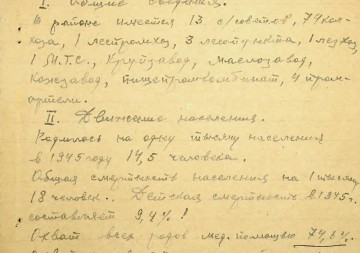 I. Общие сведения.
В районе имеется 13 с/советов, 74 кол-
хоза, 1 леспромхоз, 3 лесопункта, 1 лезхоз,
1 М.Т.С., Крупзавод, Маслозавод,
Кожзавод, пищепромкомбинат, 4 пром-
артели.
II. Движение населения.
Родилось на одну тысячу населения
в 1945 году 14,5 человека.
Общая смертность населения на 1 тысячу
18 человек.. Детская смертность в 1945 г.
составляет 9,4%!
Охват всех родов мед. помощью 74,8%.